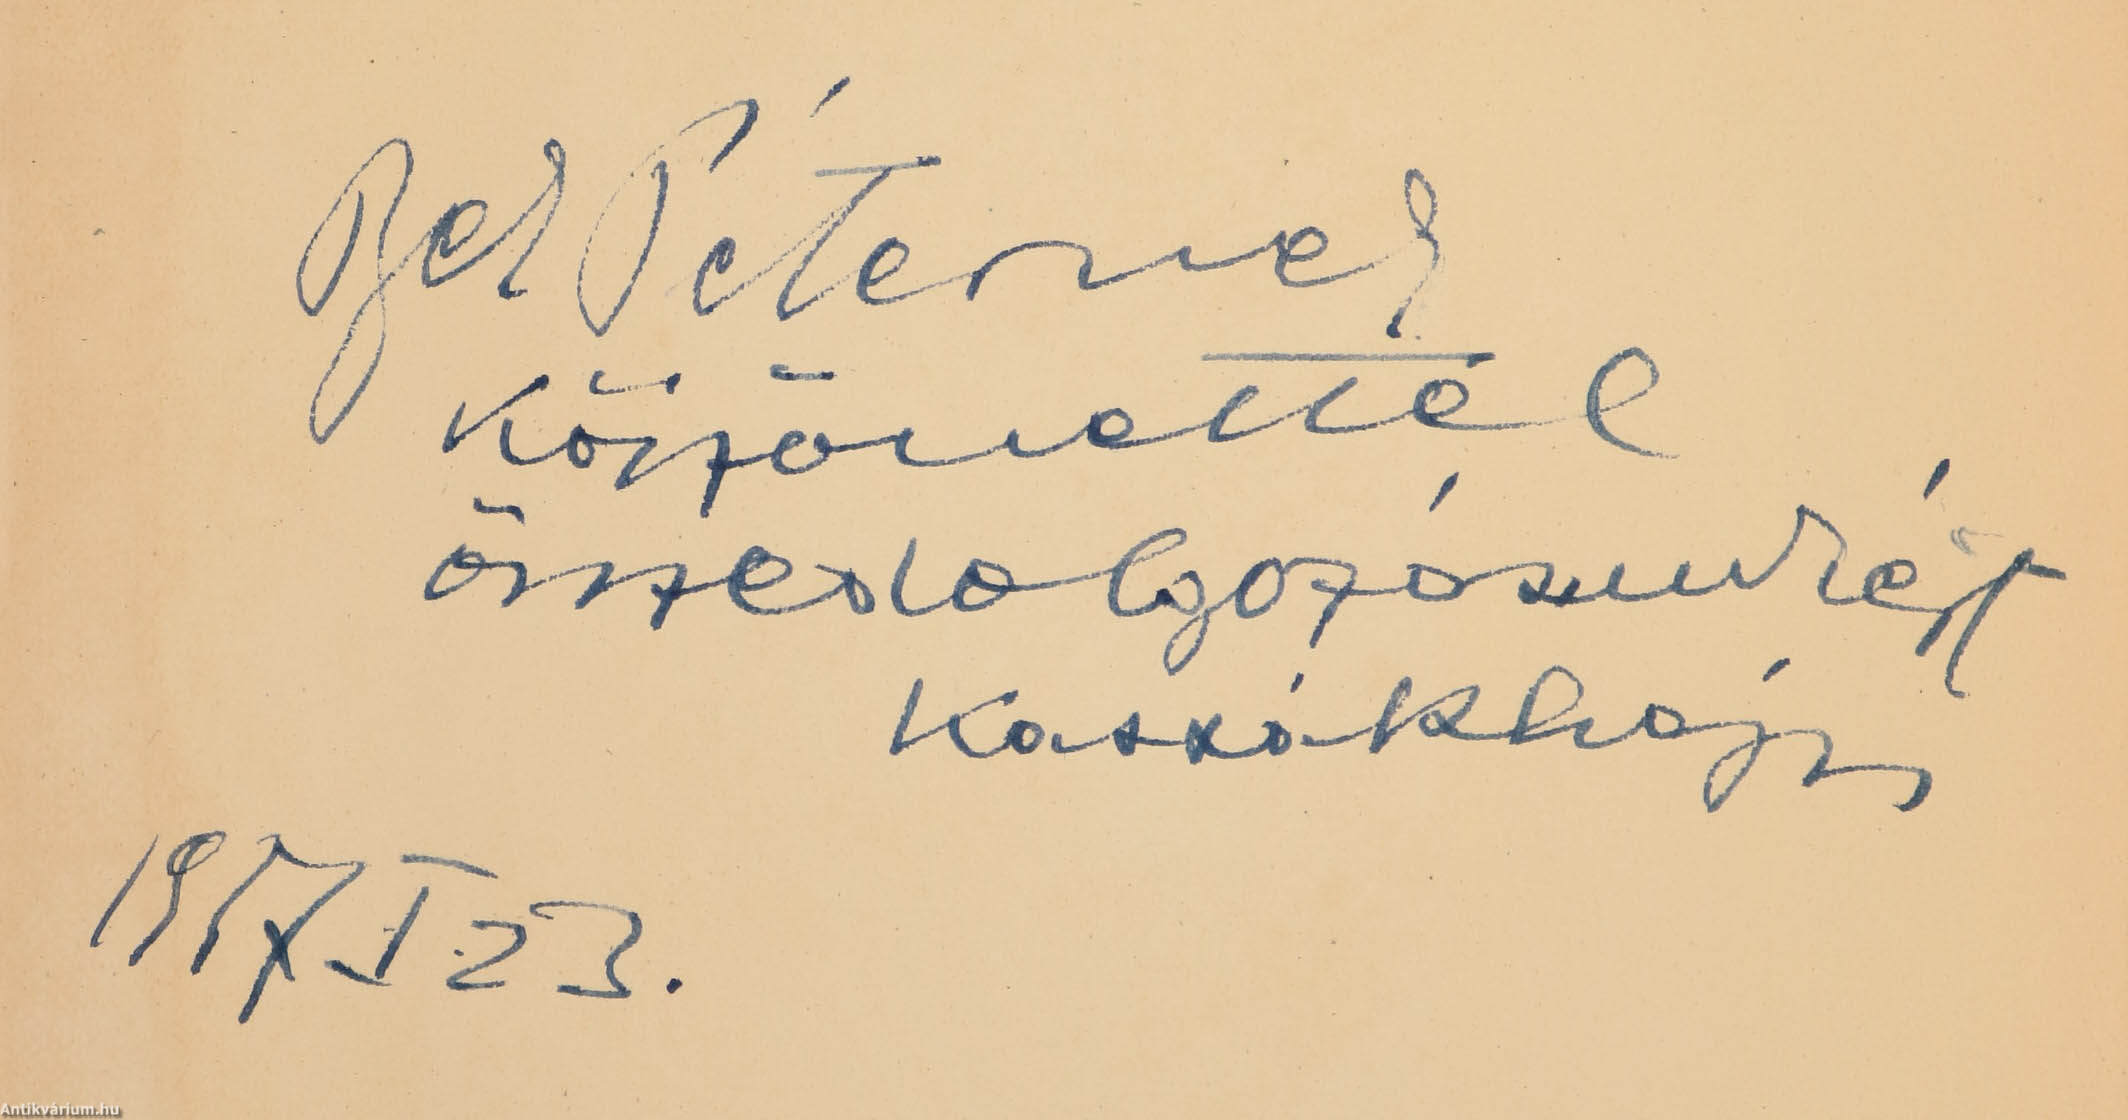 Bek Péternek
köszönettel
összedolgozásunkért
Kassák Lajos
1957 I 23.
Antikvárium.hu